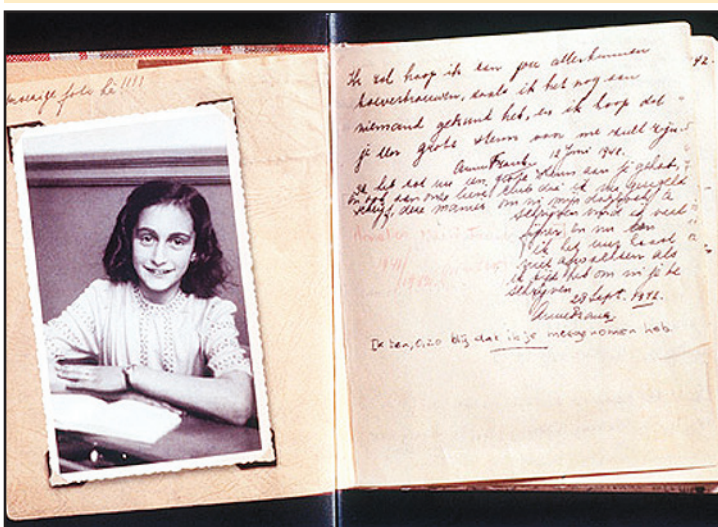 foto hè!!!!
Ik zal hoop ik aan jou alles kunnen
toevertrouwen, zoals ik het nog aan
niemand gekund heb, en ik hoop dat
je een grote steun voor me zult zijn.
Anne Frank. 12 Juni 1942.
Ik heb tot nu een grote steun aan je gehad,
en ook aan onze lieve club die ik nu geregeld
schrijf, deze manier om in mijn dagboek te
schrijven vind ik veel
fijner en nu kan
ik het uur haast
niet afwachten als
ik tijd heb om in je te
schrijven.
28 Sept. 1942.
Anne Frank.
Ik ben, o, zo blij dat ik je meegenomen heb
42.